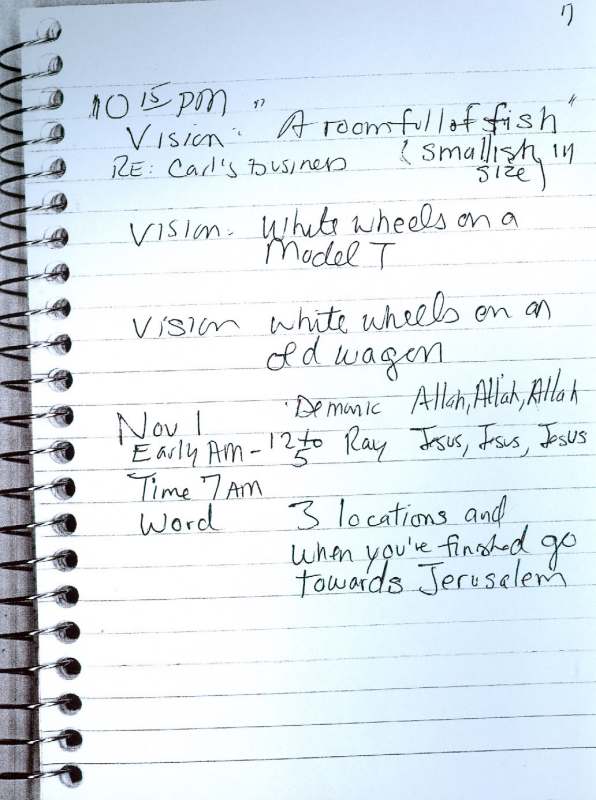 7
10 15 PM "
Vision: "A room full of fish"
RE: Carl's Business (smallish in
size)
Vision. White wheels on a
Model T
Vision white wheels on an
old wagen
Demonic Allah, Allah, Allah
Nov 1
Early AM - 12 to 5 Ray Jesus, Jesus, Jesus
Time 7 AM
Word 3 locations and
when you've finished go
towards Jerusalem